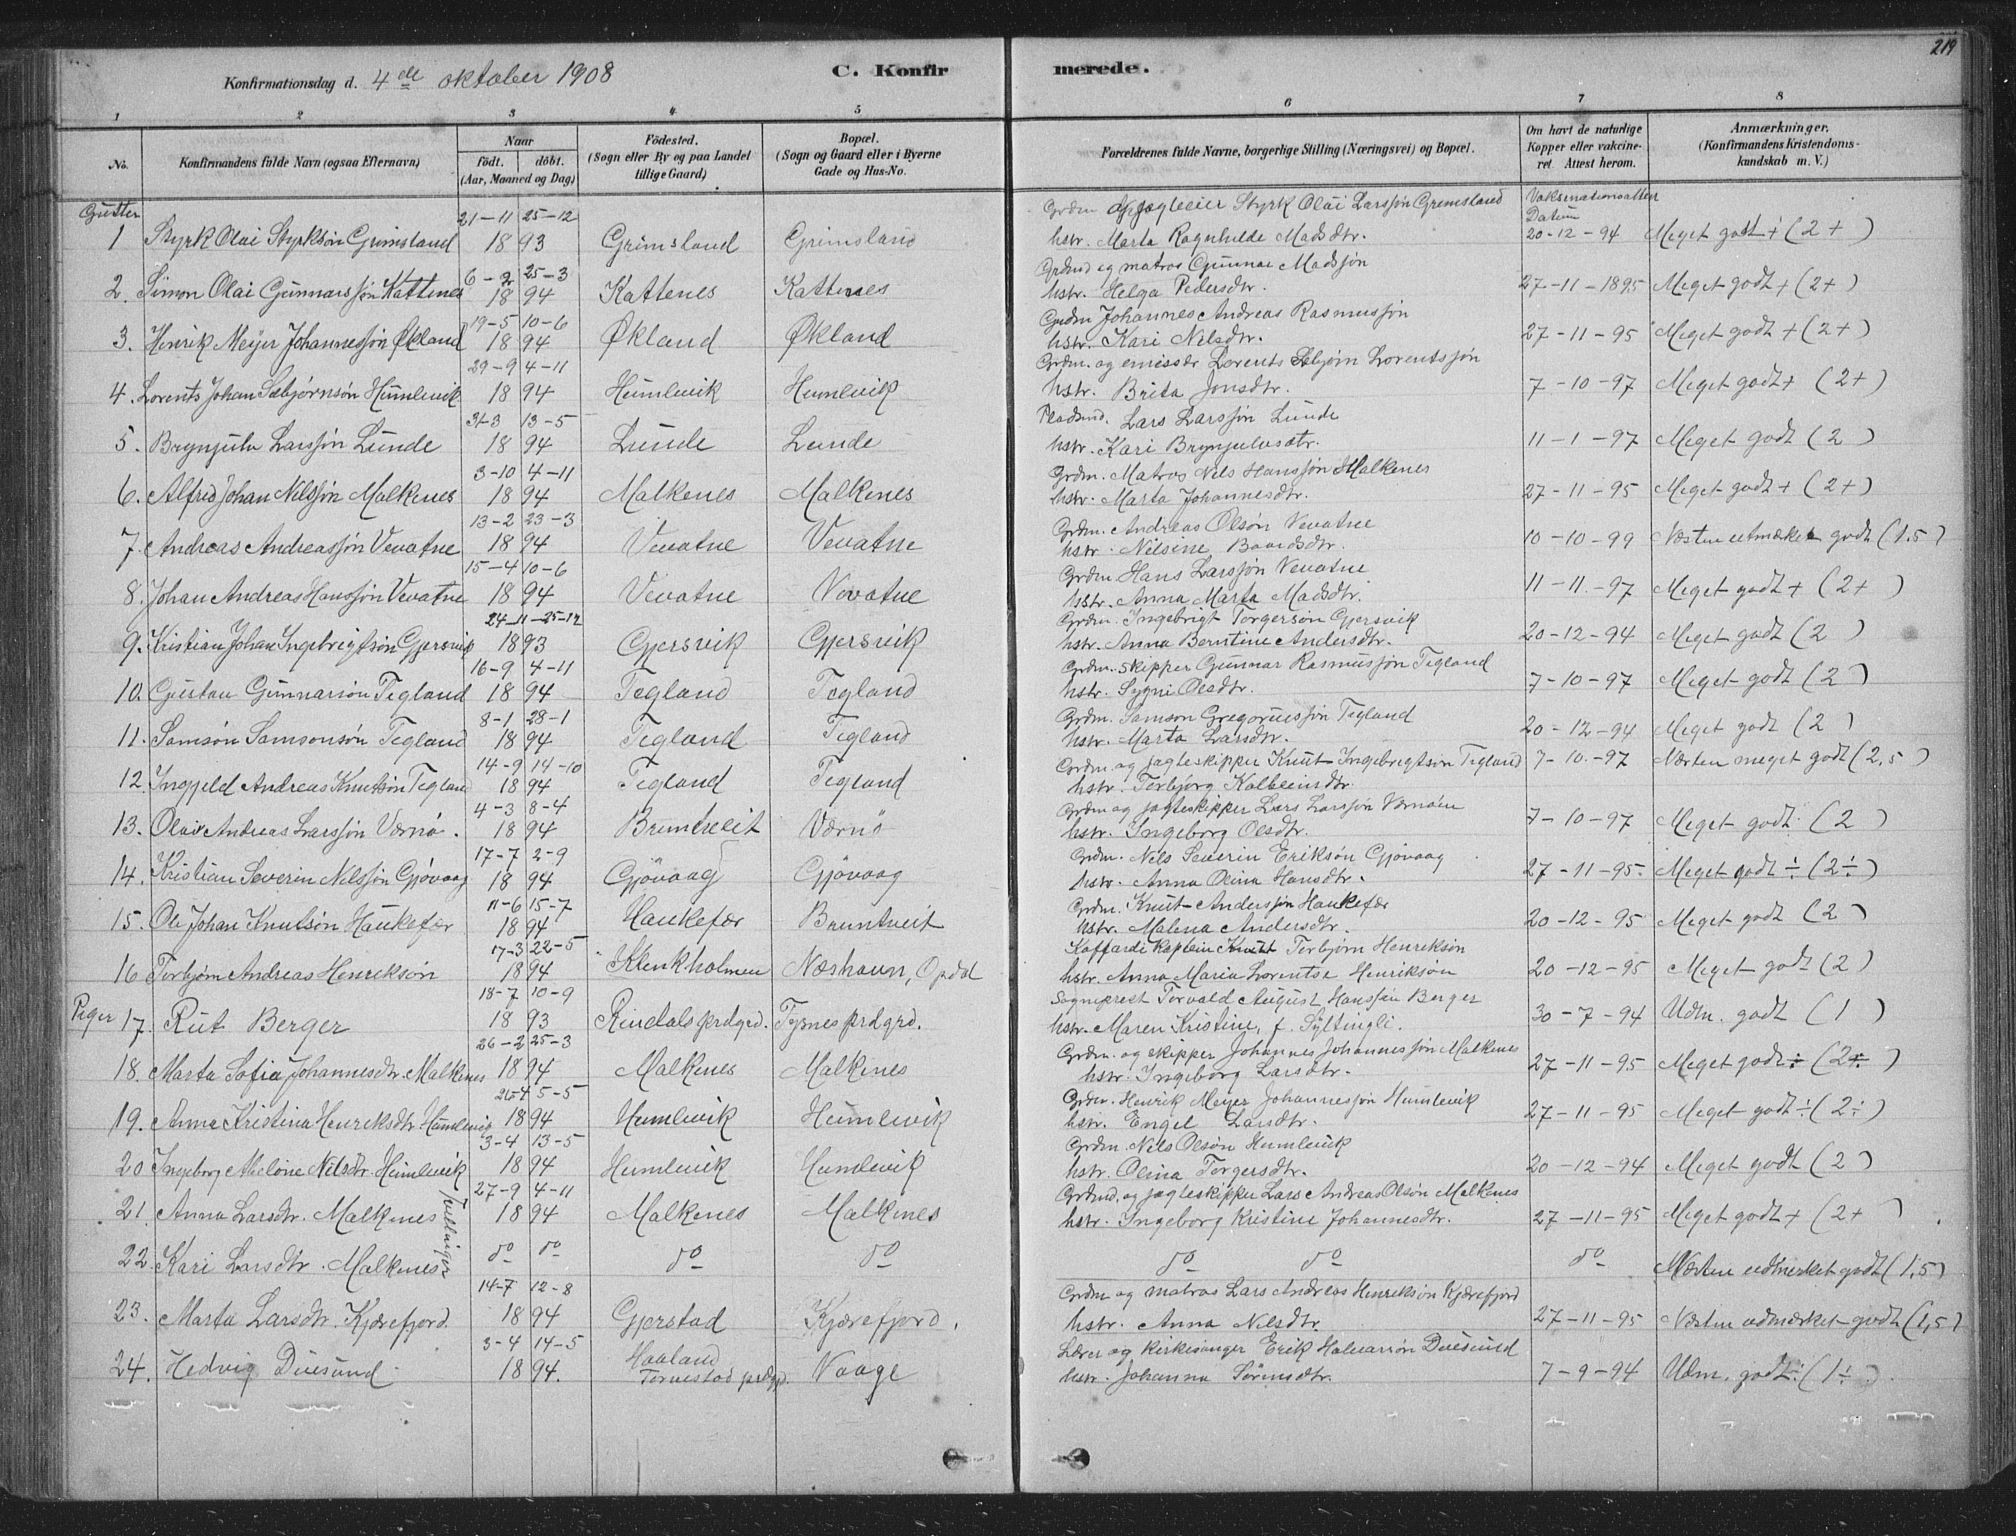 219
Konfirmationsdag d. 4de oktober 1908
C. Konfirmerede.
1 2 3 4 5 6 7 8
No.
Konfirmandens fulde Navn (ogsaa Efternavn)
Naar
født. døbt.
(Aar, Maaned og Dag)
Fødested.
(Sogn eller By og paa Landet
tillige Gaard)
Bopæl.
(Sogn og Gaard eller i Byerne
Gade og Hus-No.
Forældrenes fulde Navne, borgerlige Stilling (Næringsvei) og Bopæl.
Om havt de naturlige
Kopper eller vakcine-
ret. Attest herom.
Anmærkninger.
(Konfirmandens Kristendoms-
kundskab m. V.)
Gutter 21-11 25-12 Grdm og jægteeier Styrk Olai Larssøn Grimsland Datum
1 Styrk Olai Styrksøn Grimsland 18 93 Grimsland Grimsland hstr. Marta Ragnhilde Madsdtr. 20-12-94 Meget godt + (2+)
6-2 25-3 Grdmd og matros Gunnar Madssøn
2. Simon Olai Gunnarssøn Kattenes 18 94 Kattenes Kattenes hstr. Helga Pedersdtr. 27-11-1895 Meget godt + (2+)
19-5 10-6 Grdm Johannes Andreas Rasmussøn
3. Henrik Meyer Johannessøn Økland 18 94 Økland Økland hstr. Kari Nilsdtr. 27-11-95 Meget godt + (2+)
29-9 4-11 Grdm. og emissær Lorents Sebjørn Lorentssøn
4. Lorents Johan Sebjørnsøn Humlevik 18 94 Humlevik Humlevik hstr. Brita Jonsdtr. 7-10-97 Meget godt + (2+)
31-3 13-5 Pladsmd. Lars Larssøn Lunde
5. Brynjulv Larssøn Lunde 18 94 Lunde Lunde hstr. Kari Brynjulvsdtr. 11-1-97 Meget godt (2)
3-10 4-11 Grdm. Matros Nils Hanssøn Malkenes
6. Alfred Johan Nilssøn Malkenes 18 94 Malkenes Malkenes hstr. Marta Johannesdtr. 27-11-95 Meget godt + (2+)
13-2 23-3 Grdm. Andreas Olsøn Vevatne
7. Andreas Andreassøn Vevatne 18 94 Vevatne Vevatne hstr. Nilsine Baardsdtr. 10-10-99 Næsten utmæket godt (1.5)
15-4 10-6 Grdm Hans Larssøn Vevatne
8. Johan Andreas Hanssøn Vevatne 18 94 Vevatne Vevatne hstr. Anna Marta Madsdtr. 11-11-97 Meget godt + (2+)
24-11-25-12 Grdm. Ingebrigt Torgersøn Gjersvik
9. Kristian Johan Ingebrigtsøn Gjersvik 18 93 Gjersvik Gjersvik hstr. Anna Berntine Andersdtr. 20-12-94 Meget godt (2)
16-9 4-11 Grdm. skipper Gunnar Rasmussøn Tegland
10. Gustav Gunnarsøn Tegland 18 94 Tegland Tegland hstr. Sygni Olsdtr. 7-10-97 Meget godt (2)
8-1 28-1 Grdm. Samson Gregoriussøn Tegland
11. Samsøn Samsonsøn Tegland 18 94 Tegland Tegland hstr. Marta Larsdtr. 20-12-94 Meget godt (2)
14-9 14-10 Grdm og jagteskipper Knut Ingebrigtsøn Tegland 7-10-97 Næsten meget godt (2,5)
12. Ingjeld Andreas Knutsøn Tegland 18 94 Tegland Tegland hstr. Torbjørg Kolbeinsdtr.
4-3 8-4 Grdm og jagteskipper Lars Larssøn Værnøen
13. Olai Andreas Larssøn Værnø. 18 94 Bruntveit Værnø hstr. Ingeborg Olsdtr. 7-10-97 Meget godt (2)
17-7 2-9 Grdm. Nils Severin Eriksøn Gjøvaag
14. Kristian Severin Nilssøn Gjøvaag 18 94 Gjøvaag Gjøvaag hstr. Anna Olina Hansdtr. 27-11-95 Meget godt ÷ (2÷)
11-6 15-7 Grdm. Knut Anderssøn Haukefær
15. Ole Johan Knutsøn Haukefær 18 94 Haukefær Bruntveit hstr. Malena Andersdtr. 20-12-95 Meget godt (2)
17-3 22-5 Koffardi Kaptein Torbjørn Henriksøn
16 Torbjørn Andreas Henriksøn 18 94 Klenkholmen Næshavn, Opdal hstr. Anna Maria Lorentse Henriksøn 20-12-95 Meget godt (2)
Piger 18-7 10-9 Sogneprest Torvald August Hanssøn Berger
17. Rut Berger 18 93 Rindals prdgrd. Tysnes prdgrd. hstr. Maren Kristine, f. 30-7-94 Udm. godt (1)
26-2 25-3 Grdm. og skipper Johannes Johannessøn Malkenes
18. Marta Sofia Johannesdtr. Malkenes 18 94 Malkenes Malkenes hstr. Ingeborg Larsdtr. 27-11-95 Meget godt ÷ (2÷)
26-4 5-5 Grdm. Henrik Meyer Johannessøn Humlevik
19. Anna Kristina Henriksdtr Humlevig 18 94 Humlevik Humlevik hstr. Engel Larsdtr. 27-11-95 Meget godt ÷ (2÷)
3-4 13-5 Grdm Nils Olsøn Humlevik
20 Ingeborg Nilsdtr. Humlevik 18 94 Humlevik Humlevik hstr. Olina Torgersdtr. 20-12-94 Meget godt (2)
27-9 4-11 Grdmd. og jagteskipper Lars Andreas Olsøn Malkenes
21. Anna Larsdtr. Malkenes Tvillinger 18 94 Malkenes Malkenes hstr. Ingeborg Kristine Johannesdtr. 27-11-95 Meget godt + (2+)
22. Kari Larsdtr. Malkenes do do do do do do do Næsten udmerket godt (1,5)
14-7 12-8 Grdm og matros Lars Andreas Henriksøn Kjærefjord
23. Marta Larsdtr. Kjærefjord 18 94 Gjerstad Kjærefjord. hstr. Anna Nilsdtr 27-11-95 Næsten udmærket godt (1,5)
3-4 14-5 Haaland Lærer og kirkesanger Erik Halvarsøn Duesund
24. Hedvig Duesund 18 94. prdgjd. Vaage hstr. Johanna Sørensdtr. 7-9-94 Udm. godt ÷ (1÷)